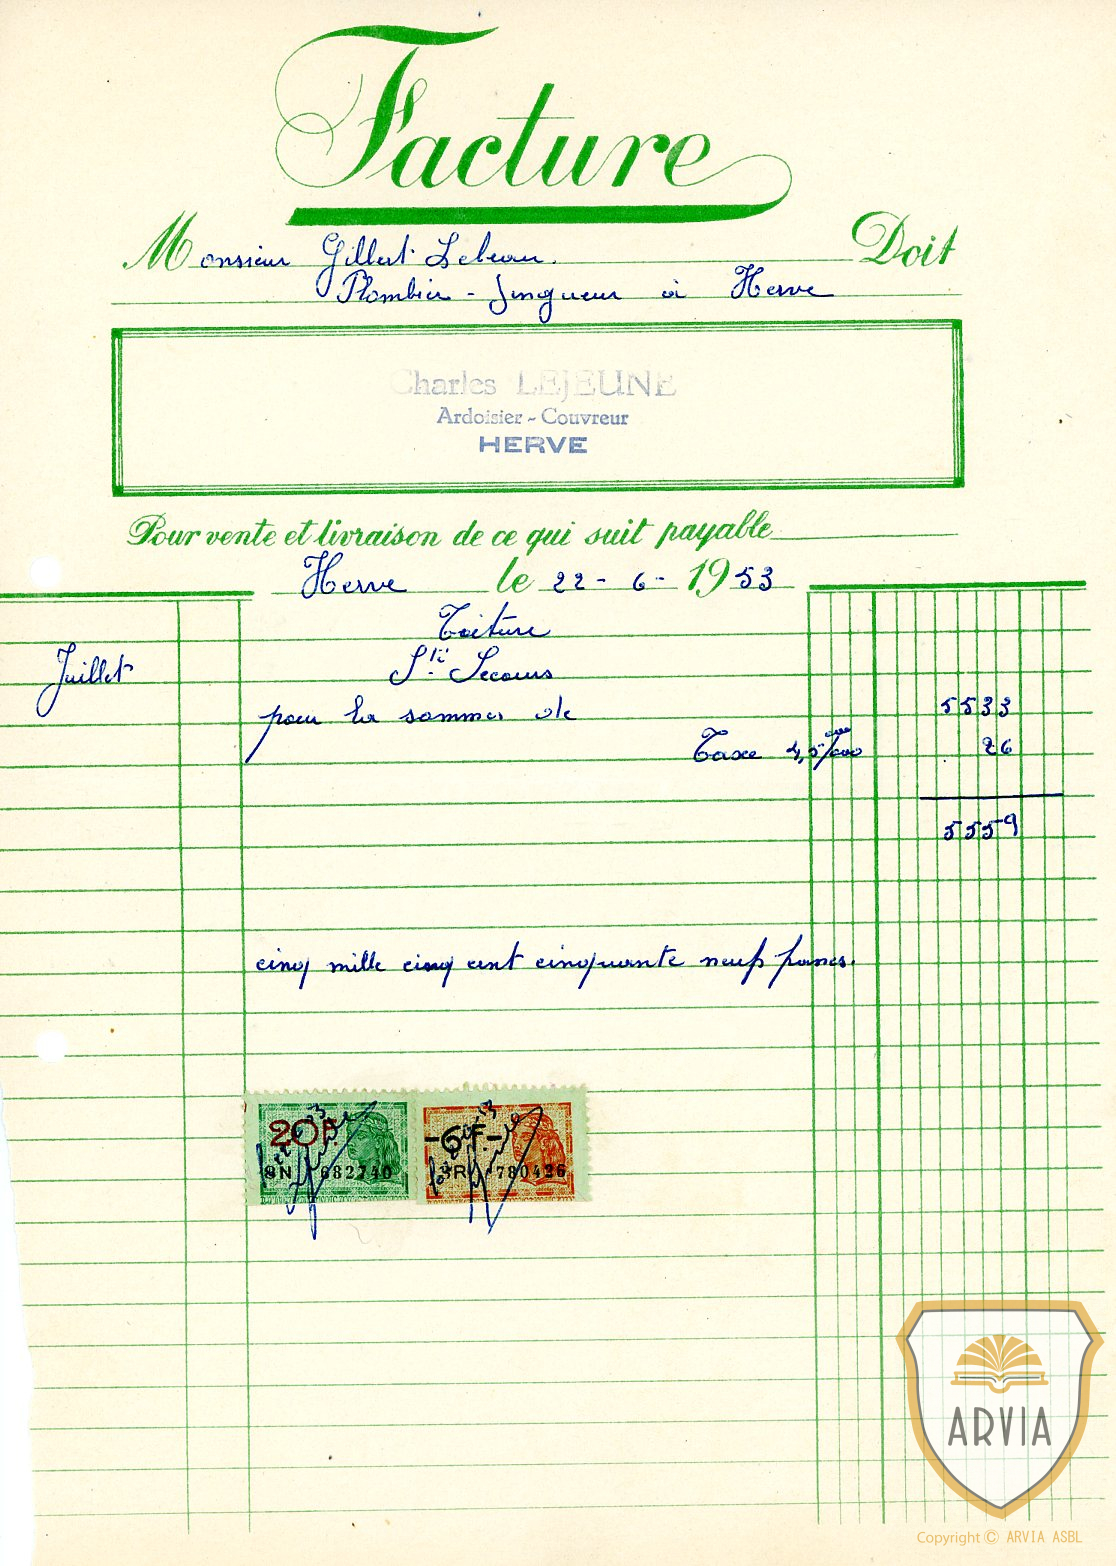 Facture
Monsieur Gilbert Lebeau. Doit
Plombier - Zingueur à Herve
Charles LEJEUNE
Ardoisier - Couvreur
HERVE
Pour vente et livraison de ce qui suit payable
Herve le 22 - 6 - 1953
Toiture
Juillet Sté Secours
pour la somme de 5533
Taxe 4,5 26
5559
cinq mille cinq cent cinquante neuf francs.
20F -6F-
8N 682740 780426
ARVIA
Copyright © ARVIA ASBL